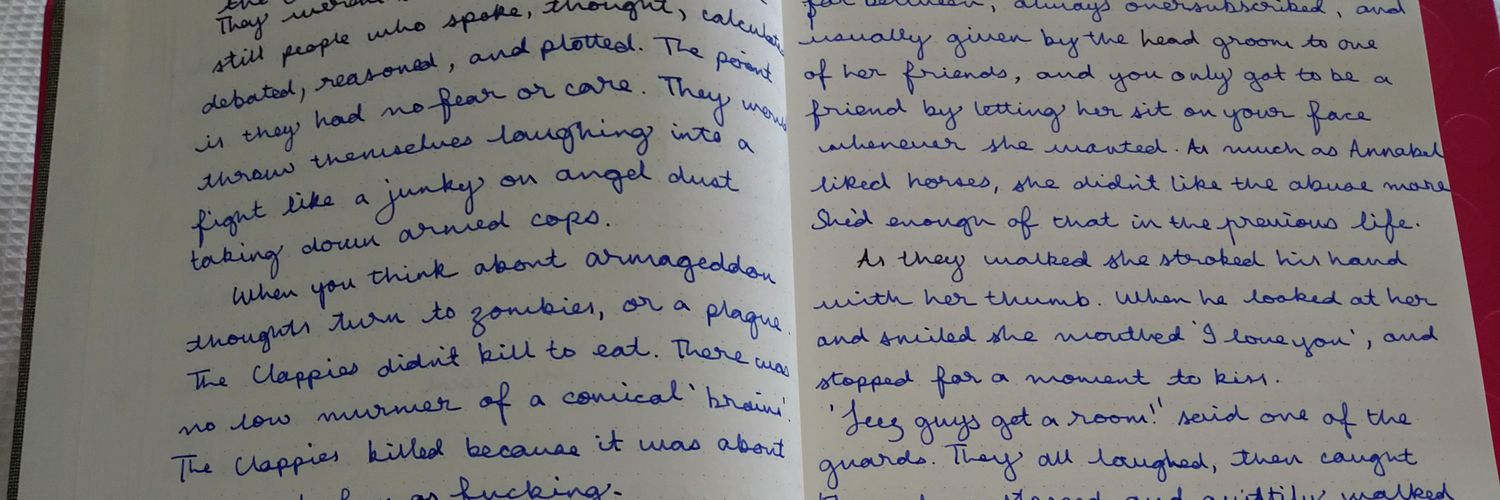 They
still people who spoke, thought, calculate
debated, reasoned, and plotted. The point
is they had no fear or care. They
throw themselves laughing into a
fight like a junky on angel dust
taking down armed cops.
When you think about armageddon
thoughts turn to zombies, or a plague.
The Clappies didn't kill to eat. There was
no low murmer of a comical 'brains'.
The Clappies killed because it was about
as fucking.
far between, always oversubscribed, and
usually given by the head groom to one
of her friends, and you only got to be a
friend by letting her sit on your face
whenever she wanted. As much as Annabel
liked horses, she didn't like the abuse more
She'd enough of that in the previous life.
As they walked she stroked his hand
with her thumb. When he looked at her
and smiled she mouthed 'I love you', and
stopped for a moment to kiss.
'Jeez guys get a room!' said one of the
guards. They all laughed, then caught
and quietly walked